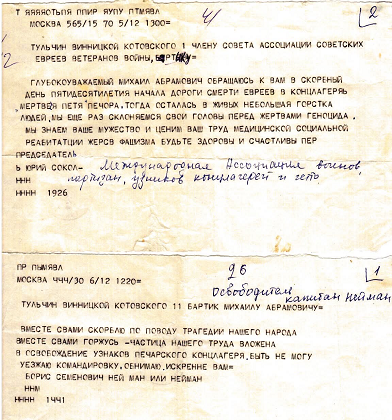 2
Т ЯЯЯЯОТЬПЯ ППИР ЯУПУ ПТМЯВЛ
МОСКВА 565/15 70 5/12 1300=
ТУЛЬЧИН ВИННИЦКОЙ КОТОВСКОГО 1 ЧЛЕНУ СОВЕТА АССОЦИАЦИИ СОВЕТСКИХ
ЕВРЕЕВ ВЕТЕРАНОВ ВОЙНЫ,
ГЛУБОКОУВАЖАЕМЫЙ МИХАИЛ АБРАМОВИЧ ОБРАЩАЮСЬ К ВАМ В СКОРБНЫЙ
ДЕНЬ ПЯТИДЕСЯТИЛЕТИЯ НАЧАЛА ДОРОГИ СМЕРТИ ЕВРЕЕВ В КОНЦЛАГЕРЬ
МЕРТВАЯ ПЕТЯ ПЕЧОРА.ТОГДА ОСТАЛАСЬ В ЖИВЫХ НЕБОЛЬШАЯ ГОРСТКА
ЛЮДЕЙ,МЫ ЕЩЕ РАЗ СКЛОНЯЕМСЯ СВОИ ГОЛОВЫ ПЕРЕД ЖЕРТВАМИ ГЕНОЦИДА .
МЫ ЗНАЕМ ВАШЕ МУЖЕСТВО И ЦЕНИМ ВАШ ТРУД МЕДИЦИНСКОЙ СОЦИАЛЬНОЙ
РЕАБИТАЦИИ ЖЕРСВ ФАШИЗМА БУДЬТЕ ЗДОРОВЫ И СЧАСТЛИВЫ ПЕР
ПРЕДСЕДАТЕЛЬ
Ь ЮРИЙ СОКОЛ- Международная Ассоциация воинов
ННН партизан, узников концлагерей и гетто
НННН 1926
ПР ПЫМЯВЛ 96 1
МОСКВА ЧЧЧ/30 6/12 1220= Освободитель
капитан Нейман
ТУЛЬЧИН ВИННИЦКОЙ КОТОВСКОГО 11 БАРТИК МИХАИЛУ АБРАМОВИЧУ=
ВМЕСТЕ СВАМИ СКОРБЛЮ ПО ПОВОДУ ТРАГЕДИИ НАШЕГО НАРОДА
ВМЕСТЕ СВАМИ ГОРЖУСЬ -ЧАСТИЦА НАШЕГО ТРУДА ВЛОЖЕНА
В ОСВОБОЖДЕНИЕ УЗНАКОВ ПЕЧАРСКОГО КОНЦЛАГЕРЯ.БЫТЬ НЕ МОГУ
УЕЗЖАЮ КОМАНДИРОВКУ.ОБНИМАЮ.ИСКРЕННЕ ВАМ=
БОРИС СЕМЕНОВИЧ НЕЙ МАН ИЛИ НЕЙМАН
ННМ
НННН 1ЧЧ1